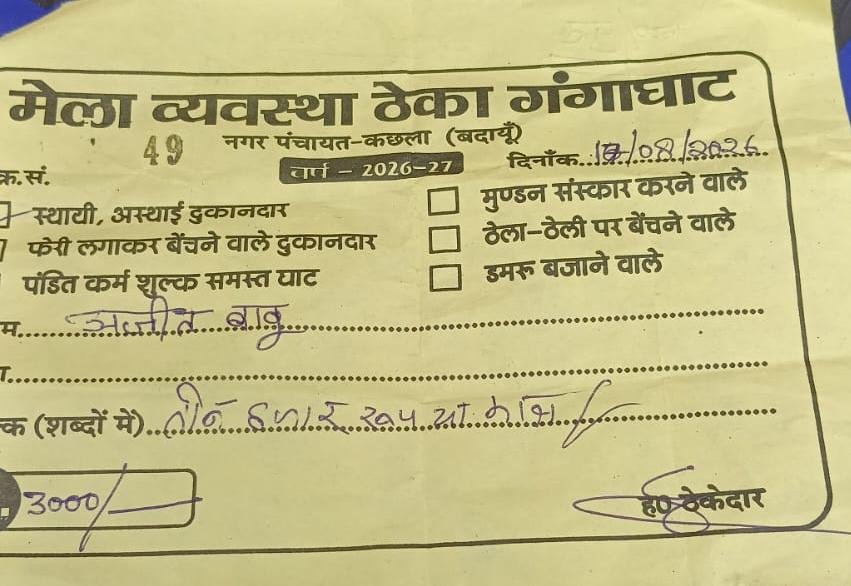 मेला व्यवस्था ठेका गंगाघाट
49 नगर पंचायत-कछला (बदायूँ)
क्र.सं. वर्ष - 2026-27 दिनाँक.. /08/2026
स्थायी, अस्थाई दुकानदार
मुण्डन संस्कार करने वाले
फेरी लगाकर बेंचने वाले दुकानदार
ठेला-ठेली पर बेंचने वाले
पंडित कर्म शुल्क समस्त घाट
डमरू बजाने वाले
म..... अजीत बाबू
क (शब्दों में).. तीन हजार रूपया मात्र
3000/-
ह0 ठेकेदार